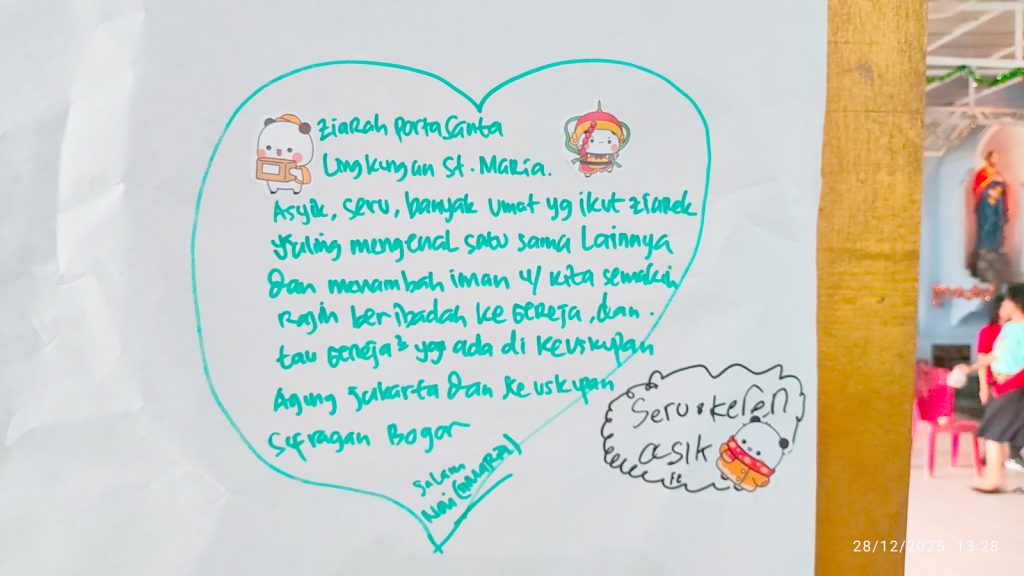 Ziarah Porta Santa
Lingkungan St. Maria.
Asyik, seru, banyak umat yg ikut ziarek
Saling mengenal satu sama Lainnya
dan menambah iman u/ kita semakin
Rajin beribadah ke Gereja, dan.
tau Gereja² yg ada di Keuskupan
Agung Jakarta dan Keuskupan
Sufragan Bogor
Salam
Seru & keren
asik
28/12/2025 13:28